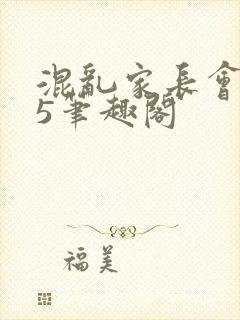 混亂家長會
5筆趣閣
福美